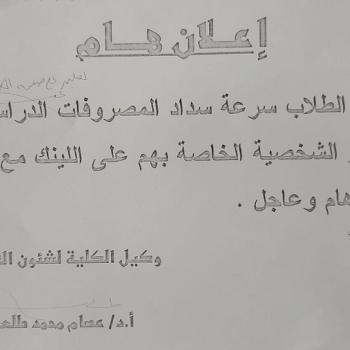 إعلان هام
الطلاب سرعة سداد المصروفات الدراس
الشخصية الخاصة بهم على اللينك مع
هام وعاجل .
وكيل الكلية لشئون ال
أ.د/ عصام محمد طلع